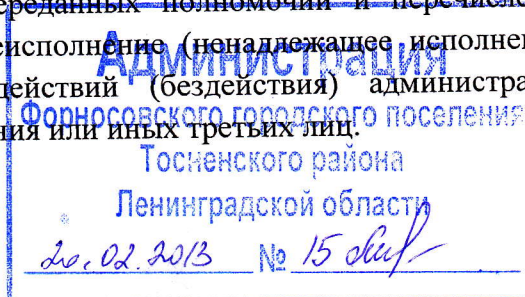 переданных полномочий и перечисле
еисполнение (ненадлежащее исполнен
действий (бездействия) администра
ния или иных третьих лиц.
Администрация
Форносовского городского поселения
Тосненского района
Ленинградской области
20.02.2013 № 15